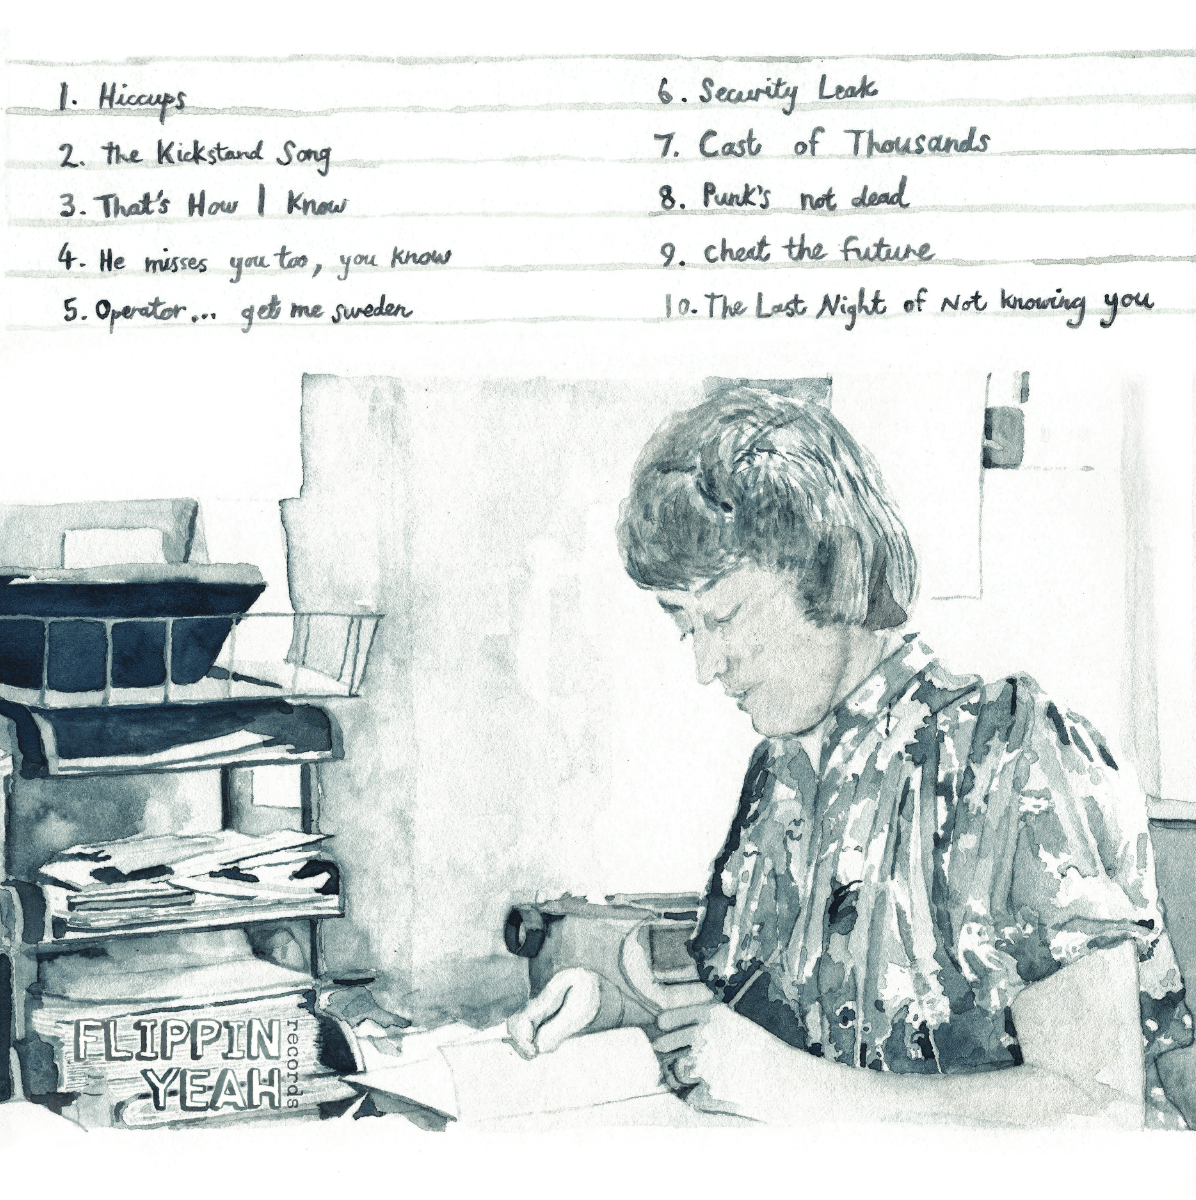 1. Hiccups
2. the Kickstand Song
3. That's How I Know
4. He misses you too, you know
5. Operator... get me sweden
6. Security Leak
7. Cast of Thousands
8. Punk's not dead
9. cheat the future
10. The Last Night of Not knowing you
FLIPPIN
YEAH
records